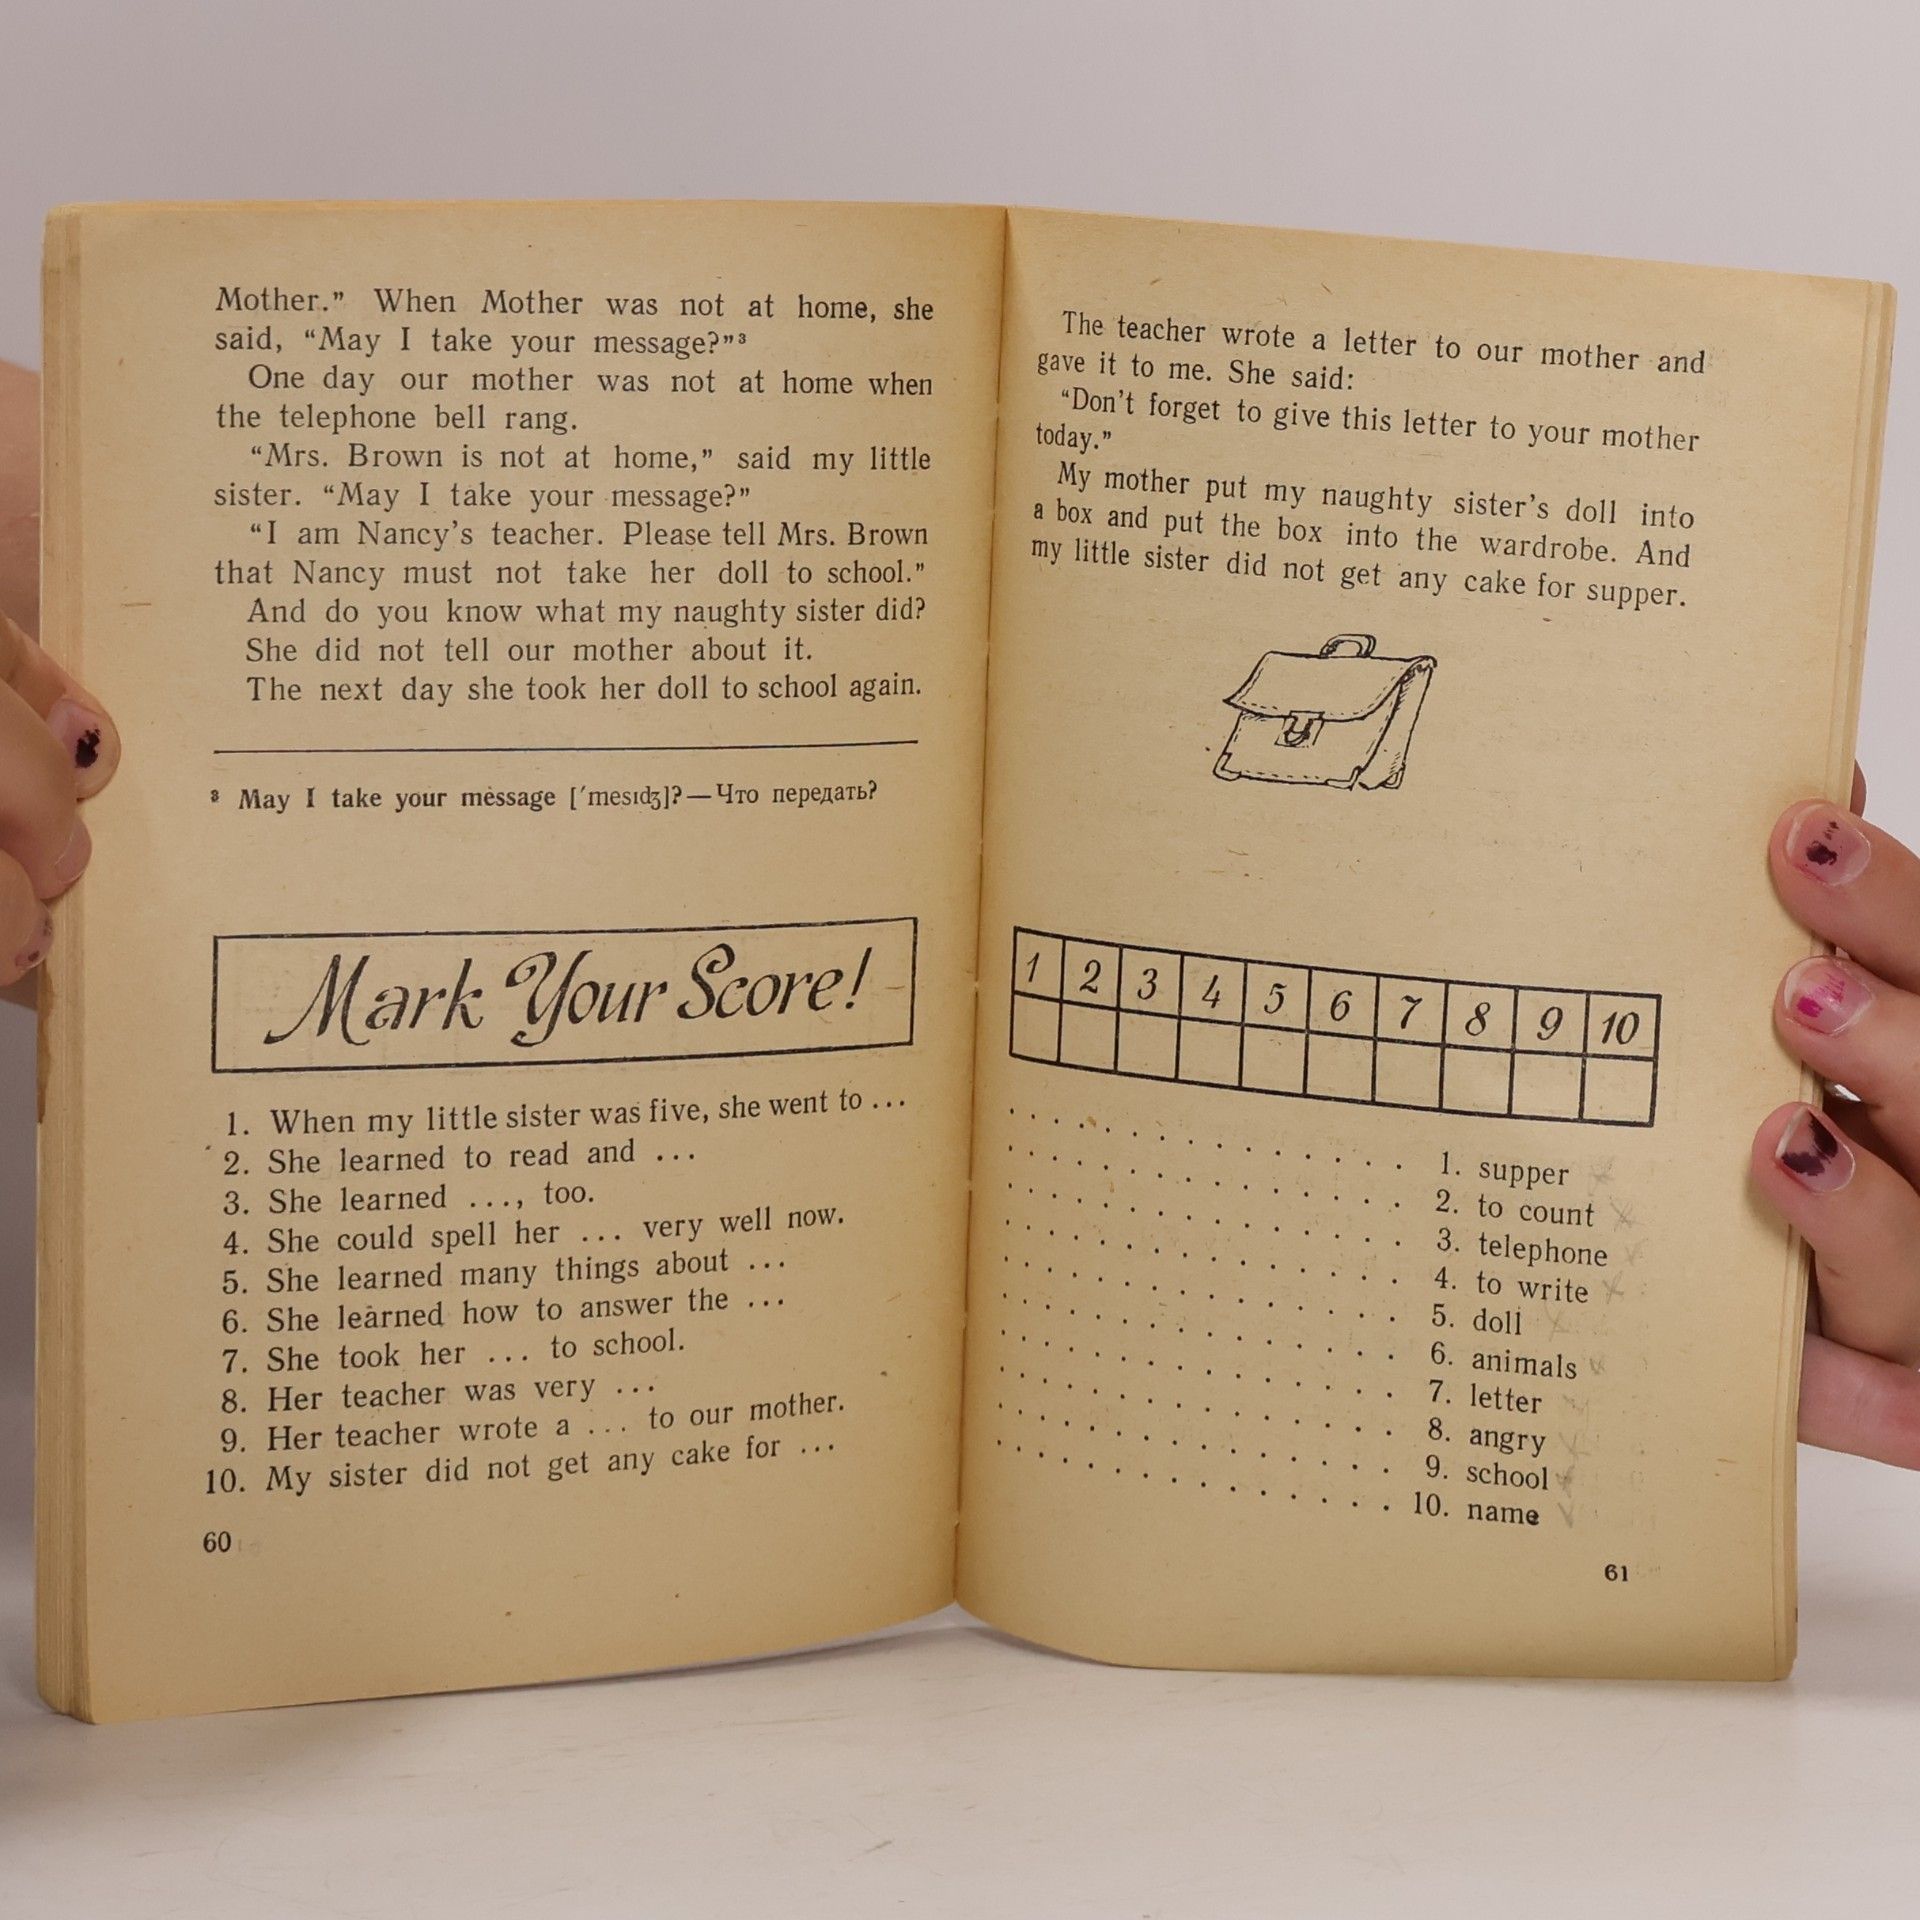 Mother.” When Mother was not at home, she
said, “May I take your message?”³
One day our mother was not at home when
the telephone bell rang.
“Mrs. Brown is not at home,” said my little
sister. “May I take your message?”
“I am Nancy’s teacher. Please tell Mrs. Brown
that Nancy must not take her doll to school.”
And do you know what my naughty sister did?
She did not tell our mother about it.
The next day she took her doll to school again.
³ May I take your message [ˈmesɪdʒ]?—Что передать?
Mark Your Score!
1. When my little sister was five, she went to ...
2. She learned to read and ...
3. She learned ..., too.
4. She could spell her ... very well now.
5. She learned many things about ...
6. She learned how to answer the ...
7. She took her ... to school.
8. Her teacher was very ...
9. Her teacher wrote a ... to our mother.
10. My sister did not get any cake for ...
60
The teacher wrote a letter to our mother and
gave it to me. She said:
“Don’t forget to give this letter to your mother
today.”
My mother put my naughty sister’s doll into
a box and put the box into the wardrobe. And
my little sister did not get any cake for supper.
1 2 3 4 5 6 7 8 9 10
. . . . . . . . . . . . . . . 1. supper
. . . . . . . . . . . . . . . 2. to count
. . . . . . . . . . . . . . . 3. telephone
. . . . . . . . . . . . . . . 4. to write
. . . . . . . . . . . . . . . 5. doll
. . . . . . . . . . . . . . . 6. animals
. . . . . . . . . . . . . . . 7. letter
. . . . . . . . . . . . . . . 8. angry
. . . . . . . . . . . . . . . 9. school
. . . . . . . . . . . . . . . 10. name
61